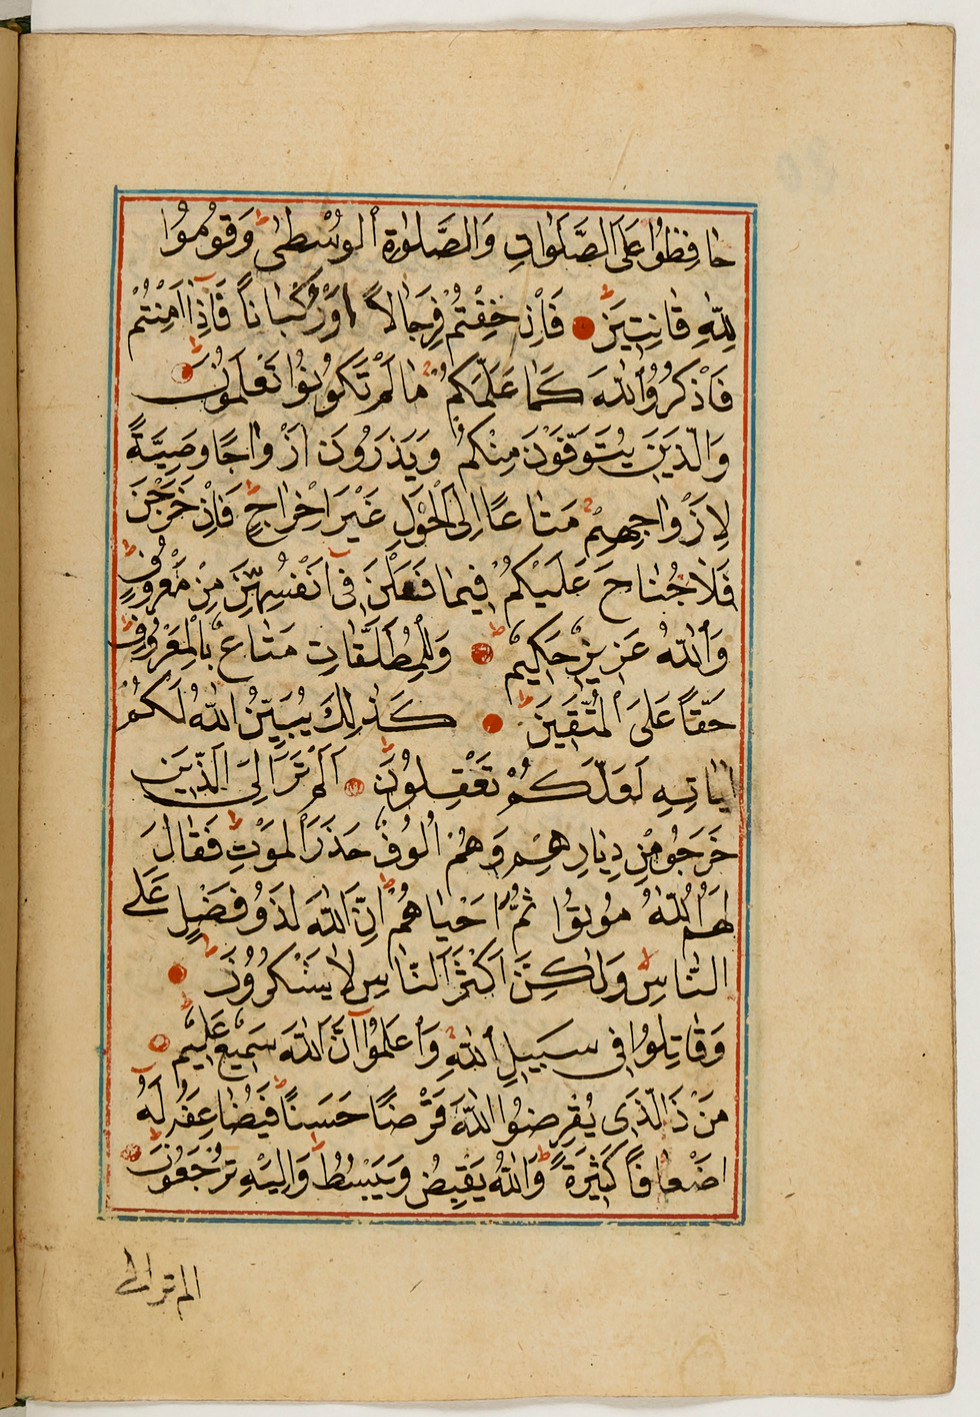 حَافِظُوا عَلَى الصَّلَوَاتِ وَالصَّلٰوةِ الْوُسْطٰى وَقُومُوا
لِلّٰهِ قَانِتِينَ فَاِنْ خِفْتُمْ فَرِجَالًا اَوْ رُكْبَانًا فَاِذَا اَمِنْتُمْ
فَاذْكُرُوا اللّٰهَ كَمَا عَلَّمَكُمْ مَا لَمْ تَكُونُوا تَعْلَمُونَ
وَالَّذِينَ يُتَوَفَّوْنَ مِنْكُمْ وَيَذَرُونَ اَزْوَاجًا وَصِيَّةً
لِاَزْوَاجِهِمْ مَتَاعًا اِلَى الْحَوْلِ غَيْرَ اِخْرَاجٍ فَاِنْ خَرَجْنَ
فَلَا جُنَاحَ عَلَيْكُمْ فِيمَا فَعَلْنَ فِى اَنْفُسِهِنَّ مِنْ مَعْرُوفٍ
وَاللّٰهُ عَزِيزٌ حَكِيمٌ وَلِلْمُطَلَّقَاتِ مَتَاعٌ بِالْمَعْرُوفِ
حَقًّا عَلَى الْمُتَّقِينَ كَذٰلِكَ يُبَيِّنُ اللّٰهُ لَكُمْ
اٰيَاتِهِ لَعَلَّكُمْ تَعْقِلُونَ اَلَمْ تَرَ اِلَى الَّذِينَ
خَرَجُوا مِنْ دِيَارِهِمْ وَهُمْ اُلُوفٌ حَذَرَ الْمَوْتِ فَقَالَ
لَهُمُ اللّٰهُ مُوتُوا ثُمَّ اَحْيَاهُمْ اِنَّ اللّٰهَ لَذُو فَضْلٍ عَلَى
النَّاسِ وَلٰكِنَّ اَكْثَرَ النَّاسِ لَا يَشْكُرُونَ
وَقَاتِلُوا فِى سَبِيلِ اللّٰهِ وَاعْلَمُوا اَنَّ اللّٰهَ سَمِيعٌ عَلِيمٌ
مَنْ ذَا الَّذِى يُقْرِضُ اللّٰهَ قَرْضًا حَسَنًا فَيُضَاعِفَهُ لَهُ
اَضْعَافًا كَثِيرَةً وَاللّٰهُ يَقْبِضُ وَيَبْسُطُ وَاِلَيْهِ تُرْجَعُونَ
الم تر الى